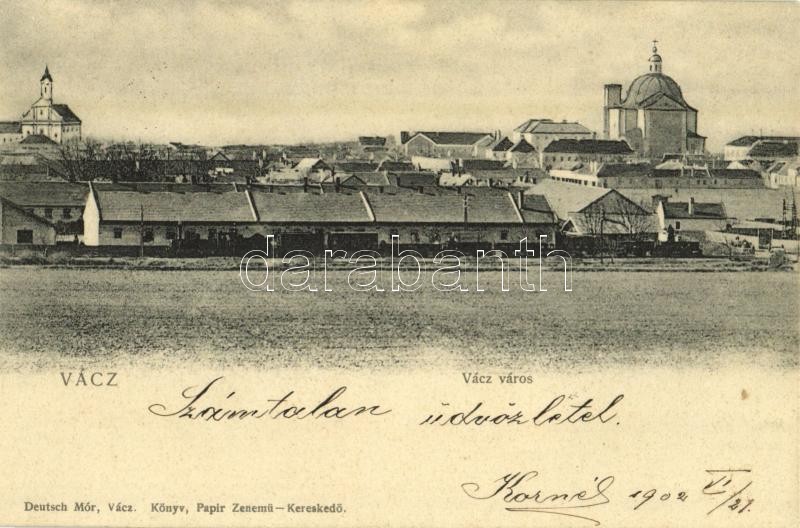 darabanth
VÁCZ
Vácz város
Számtalan üdvözletel.
Kornél 902 VI/21.
Deutsch Mór, Vácz. Könyv, Papir Zenemü—Kereskedö.